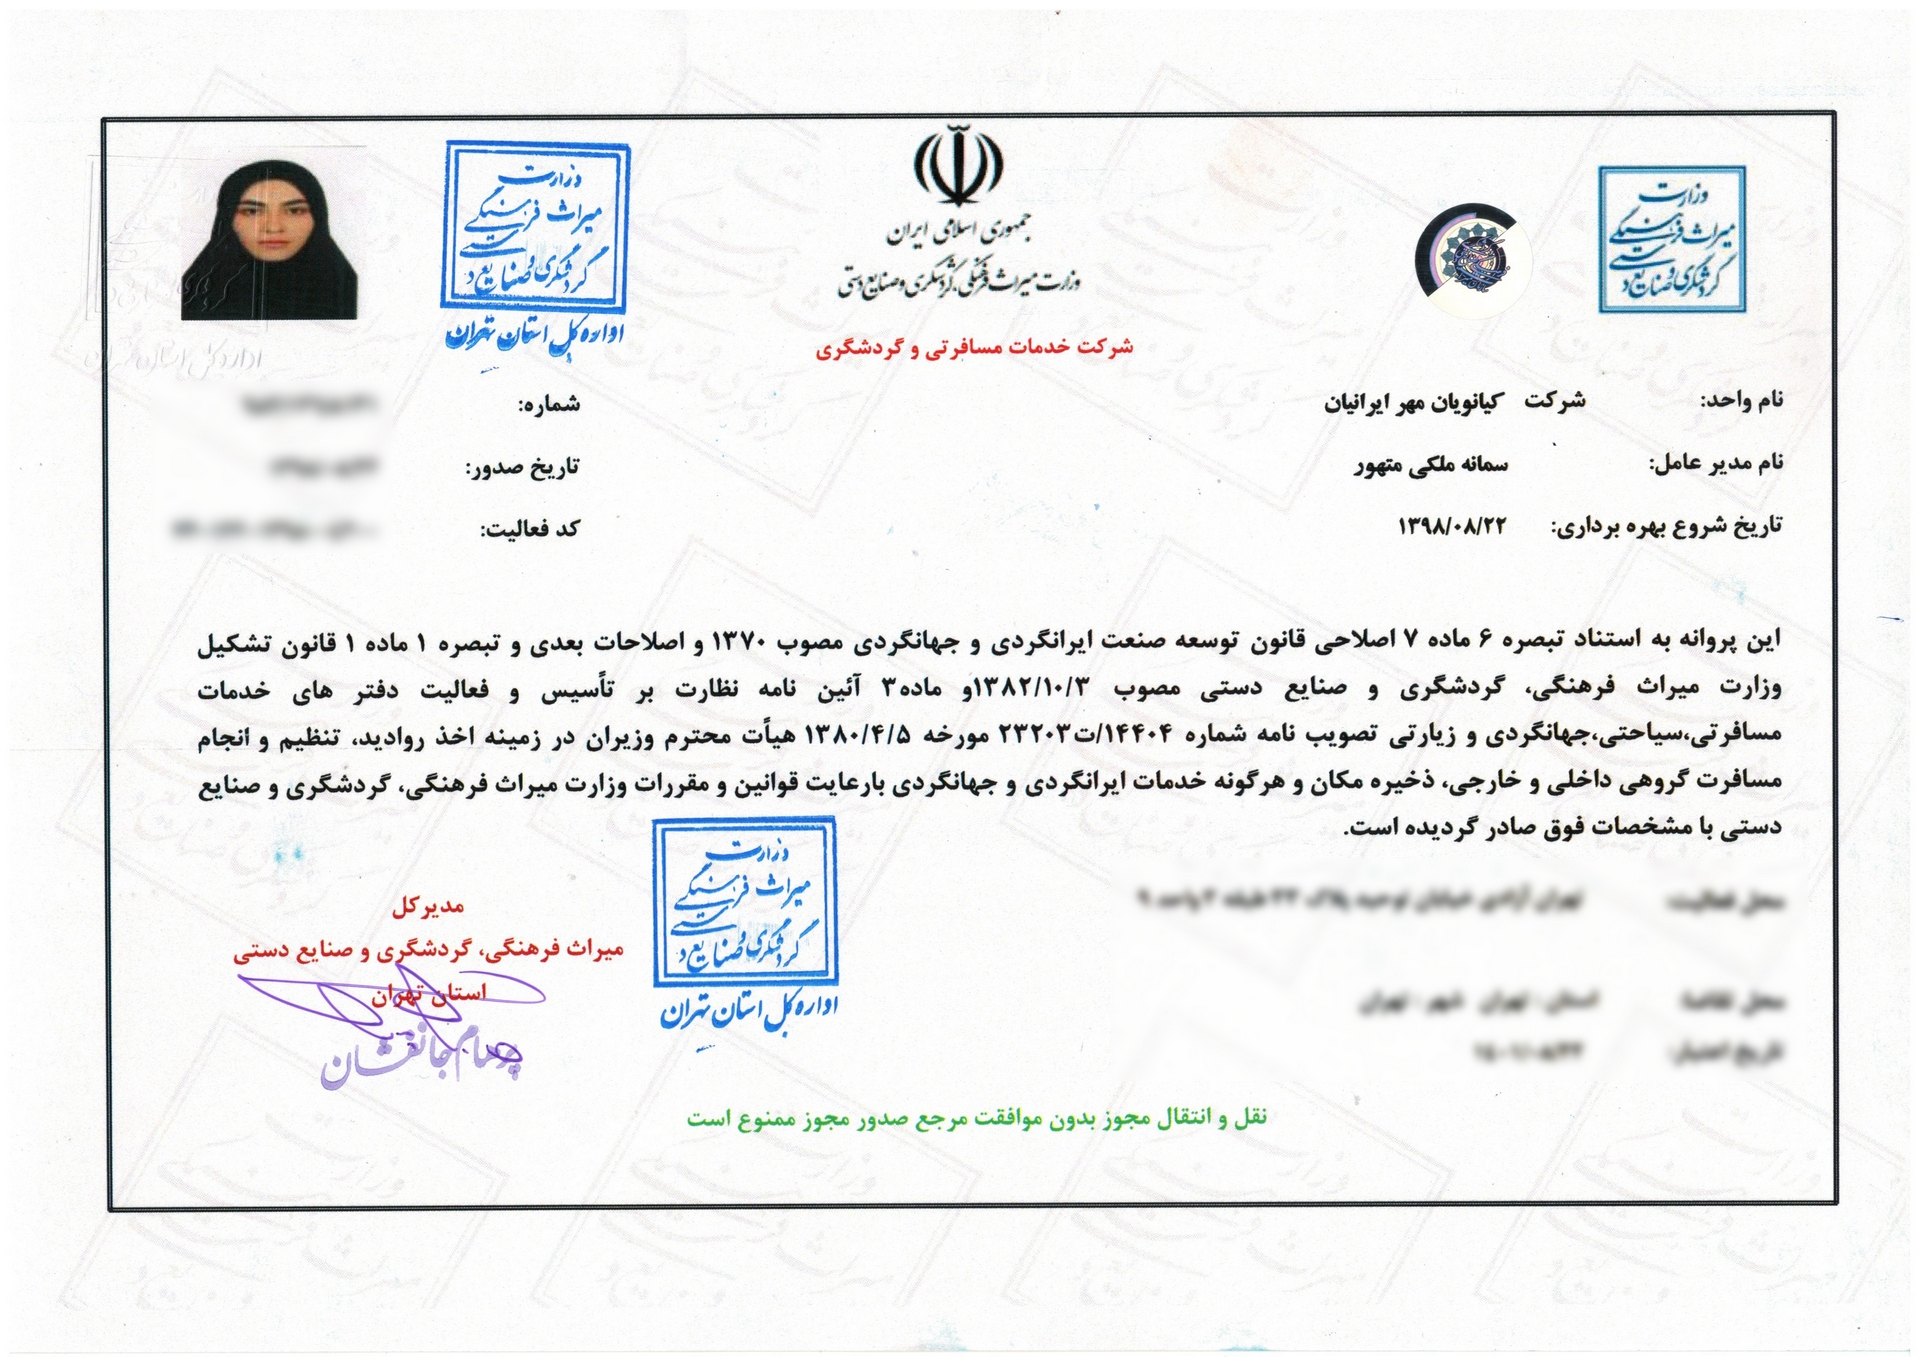 جمهوری اسلامی ایران
وزارت میراث فرهنگی، گردشگری و صنایع دستی
شرکت خدمات مسافرتی و گردشگری
وزارت میراث فرهنگی گردشگری و صنایع دستی
وزارت میراث فرهنگی گردشگری و صنایع دستی
اداره کل استان تهران
نام واحد: شرکت کیانویان مهر ایرانیان
شماره:
نام مدیر عامل: سمانه ملکی متهور
تاریخ صدور:
تاریخ شروع بهره برداری: ۱۳۹۸/۰۸/۲۲
کد فعالیت:
این پروانه به استناد تبصره ۶ ماده ۷ اصلاحی قانون توسعه صنعت ایرانگردی و جهانگردی مصوب ۱۳۷۰ و اصلاحات بعدی و تبصره ۱ ماده ۱ قانون تشکیل
وزارت میراث فرهنگی، گردشگری و صنایع دستی مصوب ۱۳۸۲/۱۰/۳و ماده۳ آئین نامه نظارت بر تأسیس و فعالیت دفتر های خدمات
مسافرتی،سیاحتی،جهانگردی و زیارتی تصویب نامه شماره ۱۴۴۰۴/ت۲۳۲۰۳ مورخه ۱۳۸۰/۴/۵ هیأت محترم وزیران در زمینه اخذ روادید، تنظیم و انجام
مسافرت گروهی داخلی و خارجی، ذخیره مکان و هرگونه خدمات ایرانگردی و جهانگردی بارعایت قوانین و مقررات وزارت میراث فرهنگی، گردشگری و صنایع
دستی با مشخصات فوق صادر گردیده است.
وزارت میراث فرهنگی گردشگری و صنایع دستی
اداره کل استان تهران
مدیرکل
میراث فرهنگی، گردشگری و صنایع دستی
استان تهران
پرهام جانفشان
نقل و انتقال مجوز بدون موافقت مرجع صدور مجوز ممنوع است